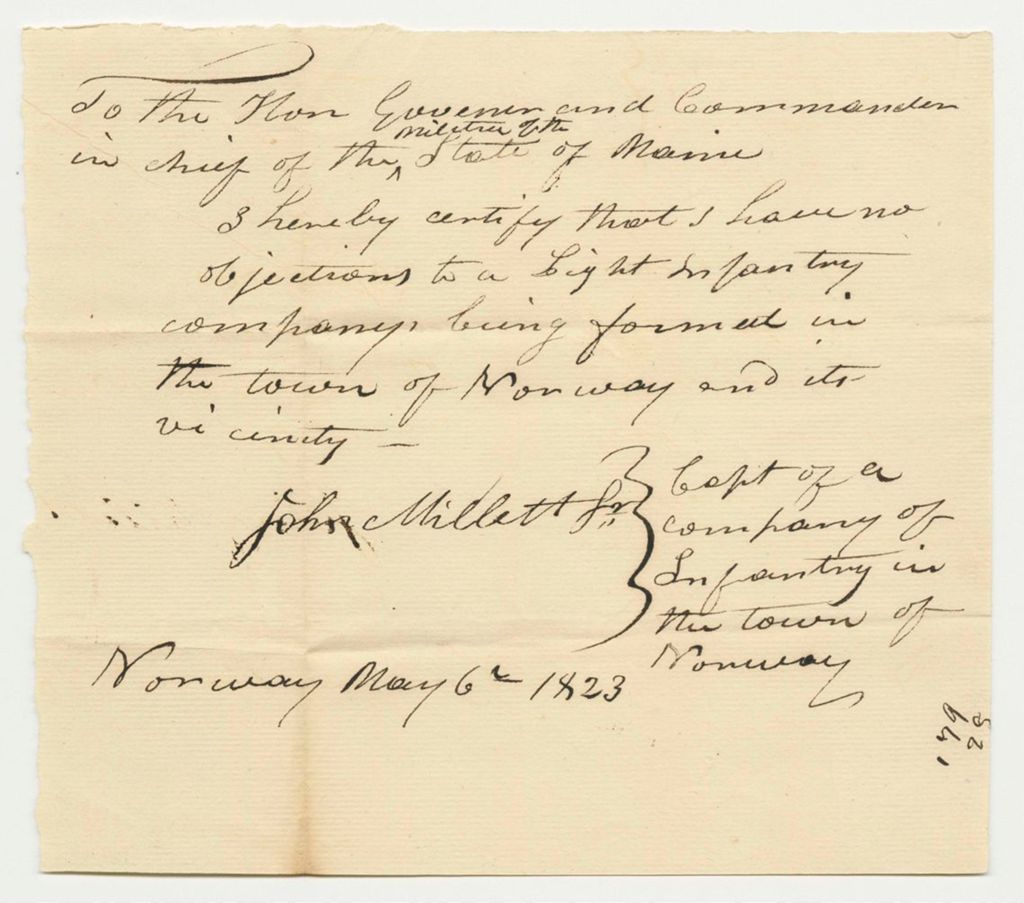 To the Hon Govener and Commander
in chief of the ^ militia of the State of Maine
I hereby certify that I have no
objections to a Light Infantry
company being formed in
the town of Norway and its
vicinity –
John Millett Jr
Capt of a
company of
Infantry in
the town of
Norway
Norway May 6th 1823
179
28